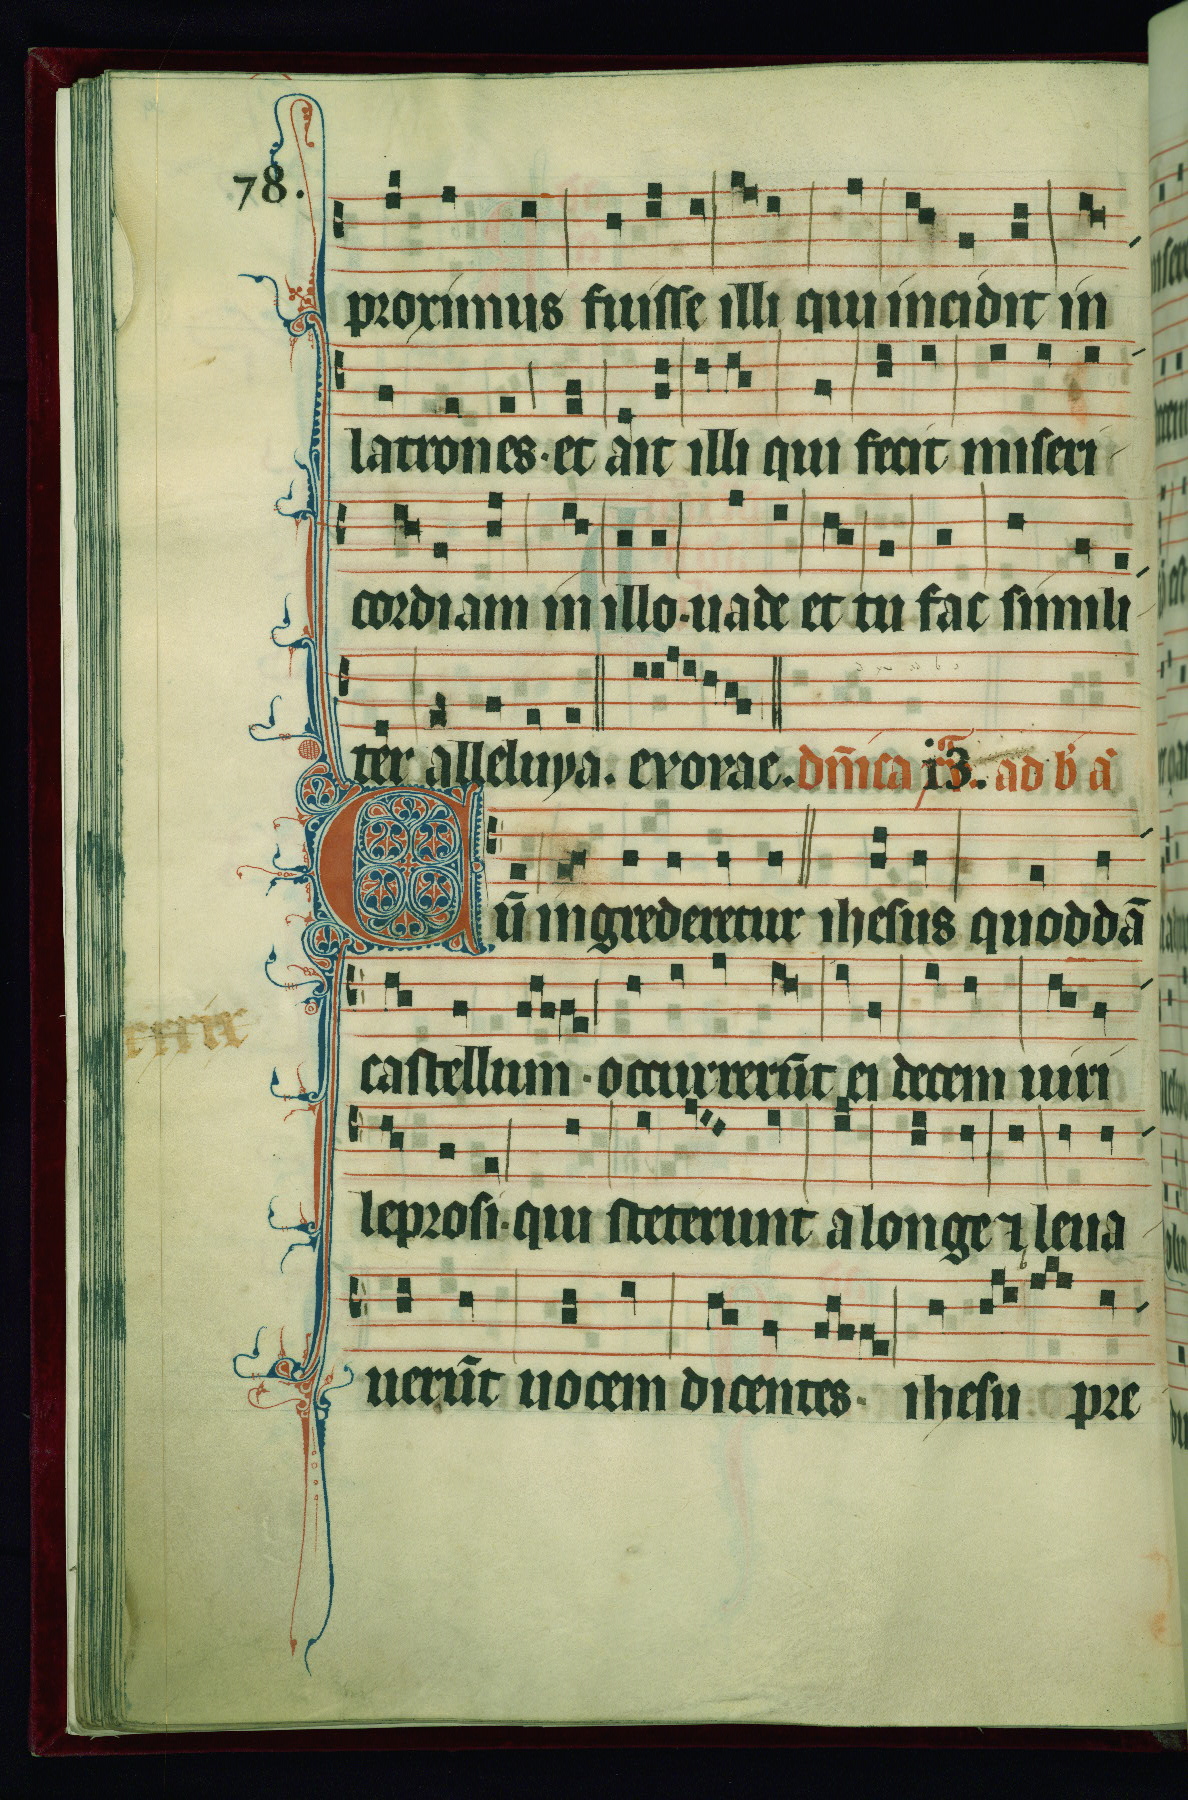 78.
proximus fuisse illi qui incidit in
latrones·et ait illi qui fecit miseri
cordiam in illo·uade et tu fac simili
ter alleluya. evovae. dn̄ica i3. ad b a
Cū ingrederetur ihesus quoddā
castellum·occurrerūt ei decem uiri
leprosi·qui steterunt a longe ⁊ leua
uerūt uocem dicentes· ihesu pre